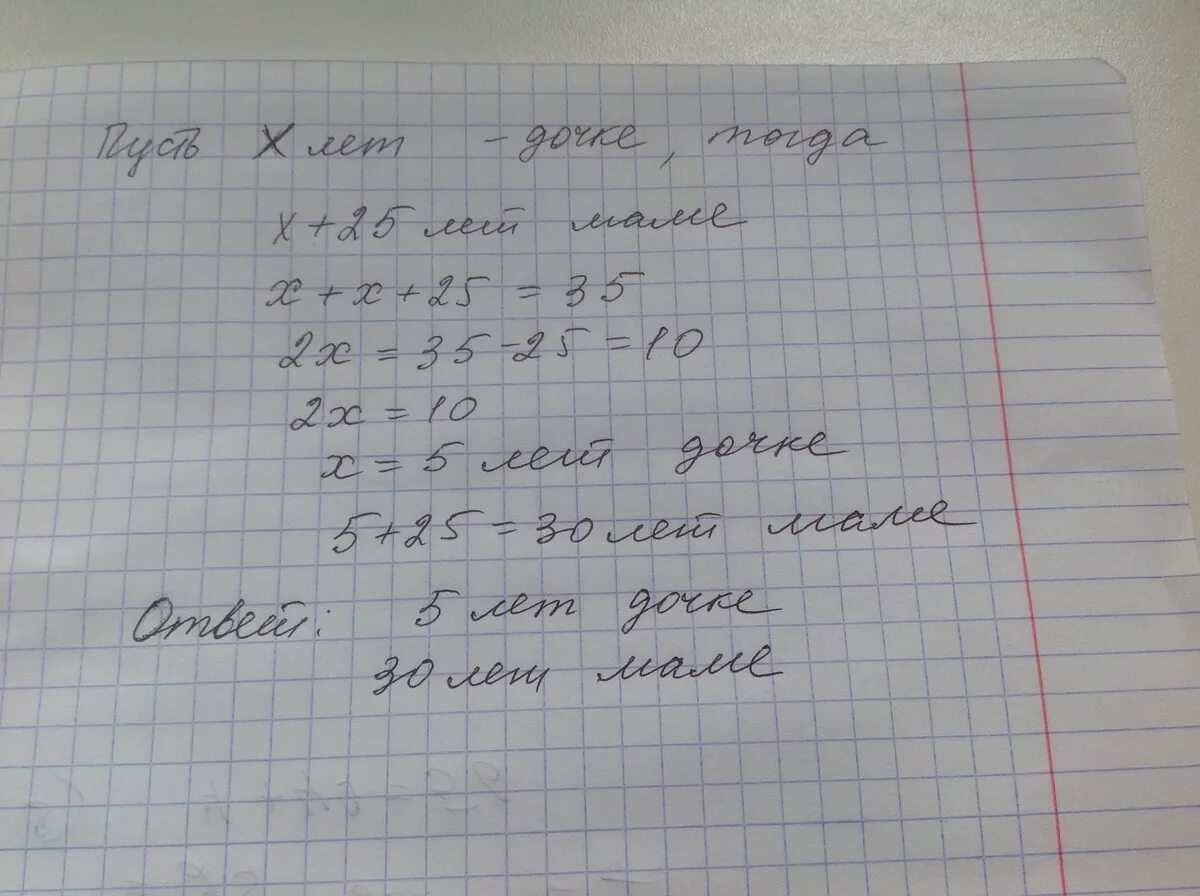 Пусть X лет - дочке, тогда
x + 25 лет маме
x + x + 25 = 35
2x = 35 - 25 = 10
2x = 10
x = 5 лет дочке
5 + 25 = 30 лет маме
Ответ: 5 лет дочке
30 лет маме